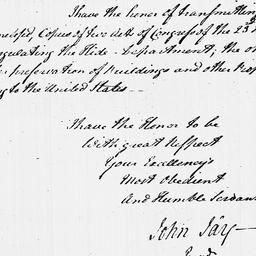 I have the honor of transmitting
Copies of two Acts of Congress of the 23d
regulating the Hide-Department; the o
preservation of Buildings and other Pro
g to the United States —
I have the Honor to be
With great Respect
Your Excellency's
Most Obedient
And Humble Servan
John Jay —